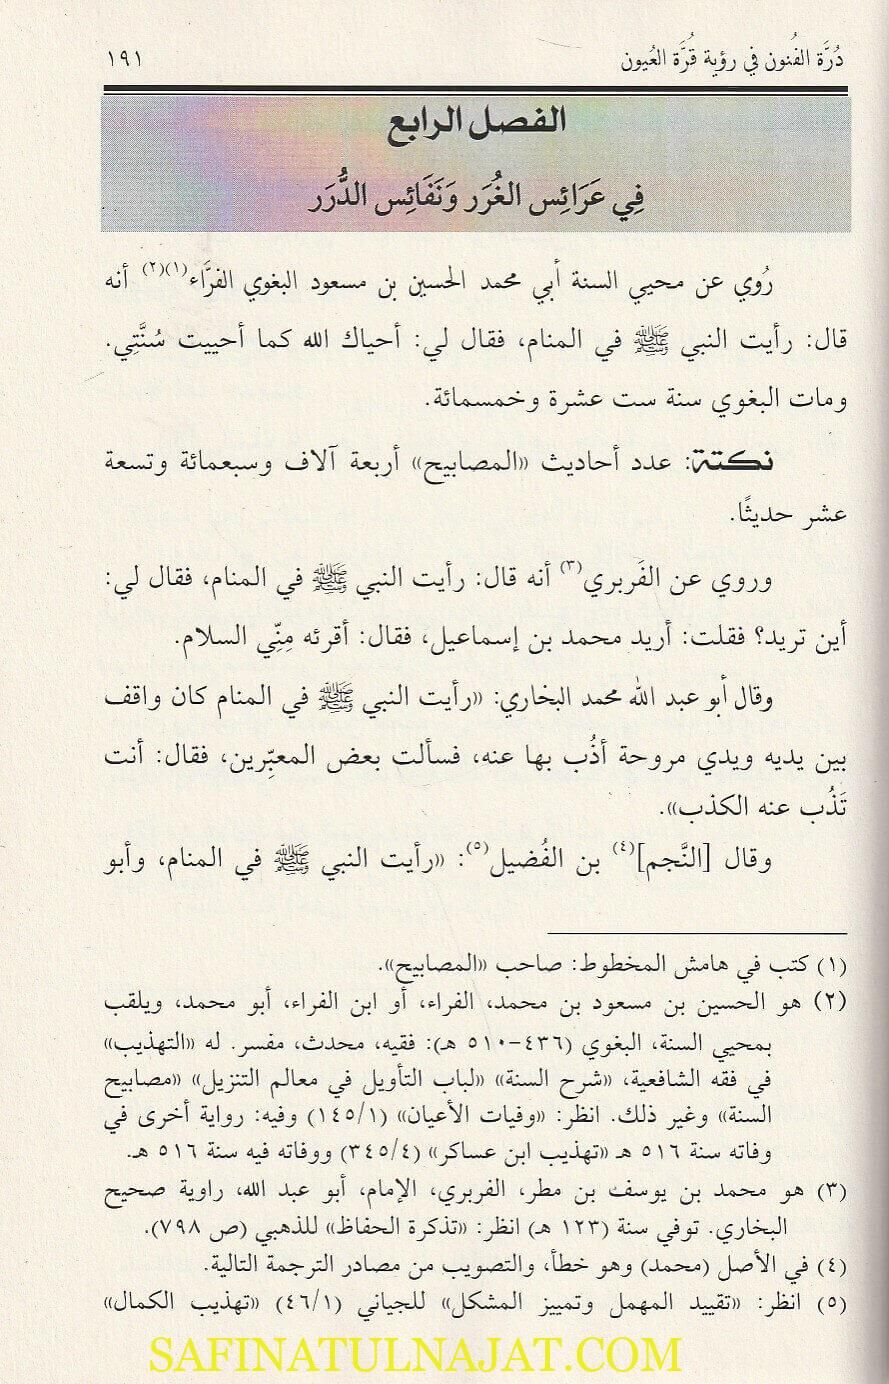 دُرَّة الفُنون في رؤية قُرَّة العُيون ١٩١
الفصل الرابع
فِي عَرَائِس الغُرَر وَنَفَائِس الدُّرَر
رُوي عن محيي السنة أبي محمد الحسين بن مسعود البغوي الفرَّاء(١)(٢) أنه
قال: رأيت النبي ﷺ في المنام، فقال لي: أحياك الله كما أحييت سُنَّتِي.
ومات البغوي سنة ست عشرة وخمسمائة.
نكتة: عدد أحاديث «المصابيح» أربعة آلاف وسبعمائة وتسعة
عشر حديثًا.
وروي عن الفَربري(٣) أنه قال: رأيت النبي ﷺ في المنام، فقال لي:
أين تريد؟ فقلت: أريد محمد بن إسماعيل، فقال: أقرئه مِنِّي السلام.
وقال أبو عبد الله محمد البخاري: «رأيت النبي ﷺ في المنام كان واقف
بين يديه ويدي مروحة أذُب بها عنه، فسألت بعض المعبِّرين، فقال: أنت
تَذُب عنه الكذب».
وقال [النَّجم](٤) بن الفُضيل(٥): «رأيت النبي ﷺ في المنام، وأبو
(١) كتب في هامش المخطوط: صاحب «المصابيح».
(٢) هو الحسين بن مسعود بن محمد، الفراء، أو ابن الفراء، أبو محمد، ويلقب
بمحيي السنة، البغوي (٤٣٦-٥١٠ هـ): فقيه، محدث، مفسر. له «التهذيب»
في فقه الشافعية، «شرح السنة» «لباب التأويل في معالم التنزيل» «مصابيح
السنة» وغير ذلك. انظر: «وفيات الأعيان» (١٤٥/١) وفيه: رواية أخرى في
وفاته سنة ٥١٦ هـ «تهذيب ابن عساكر» (٣٤٥/٤) ووفاته فيه سنة ٥١٦ هـ.
(٣) هو محمد بن يوسف بن مطر، الفربري، الإمام، أبو عبد الله، راوية صحيح
البخاري. توفي سنة (١٢٣ هـ) انظر: «تذكرة الحفاظ» للذهبي (ص ٧٩٨).
(٤) في الأصل (محمد) وهو خطأ، والتصويب من مصادر الترجمة التالية.
(٥) انظر: «تقييد المهمل وتمييز المشكل» للجياني (٤٦/١) «تهذيب الكمال»
SAFINATULNAJAT.COM